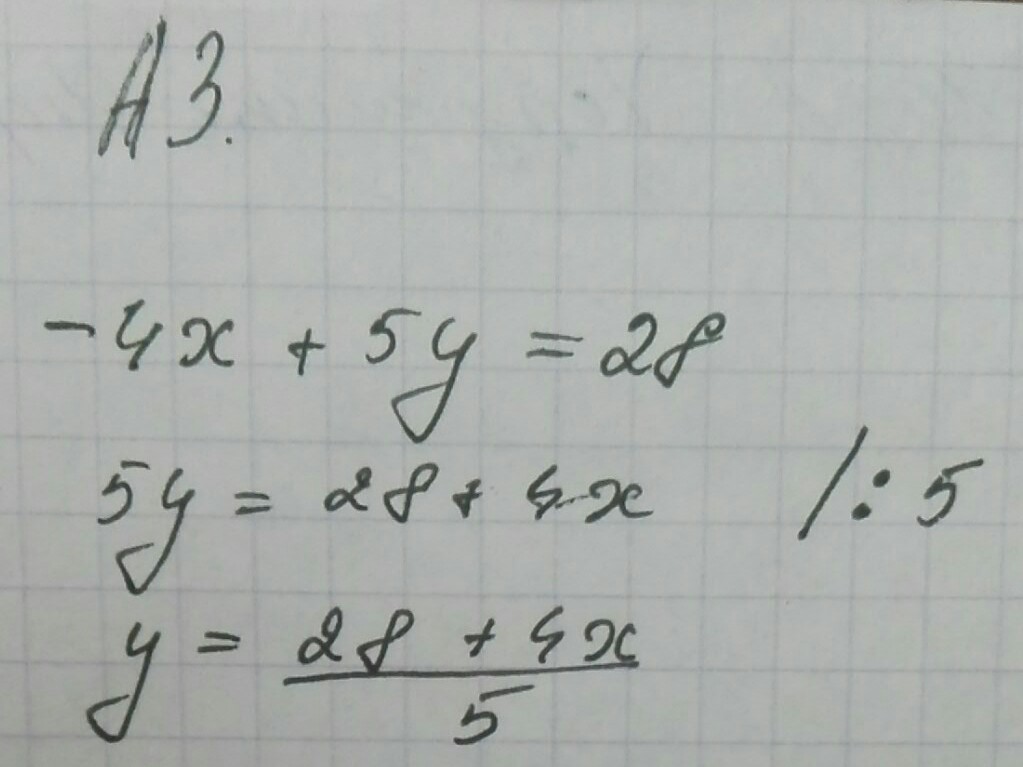 А3.
-4x + 5y = 28
5y = 28 + 4x /: 5
y = \frac{28 + 4x}{5}